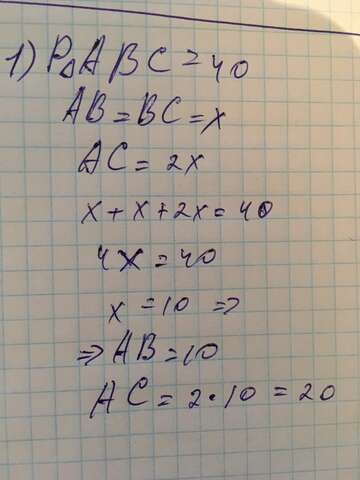 1) P△ABC = 40
AB = BC = x
AC = 2x
x + x + 2x = 40
4x = 40
x = 10 =>
=> AB = 10
AC = 2 · 10 = 20